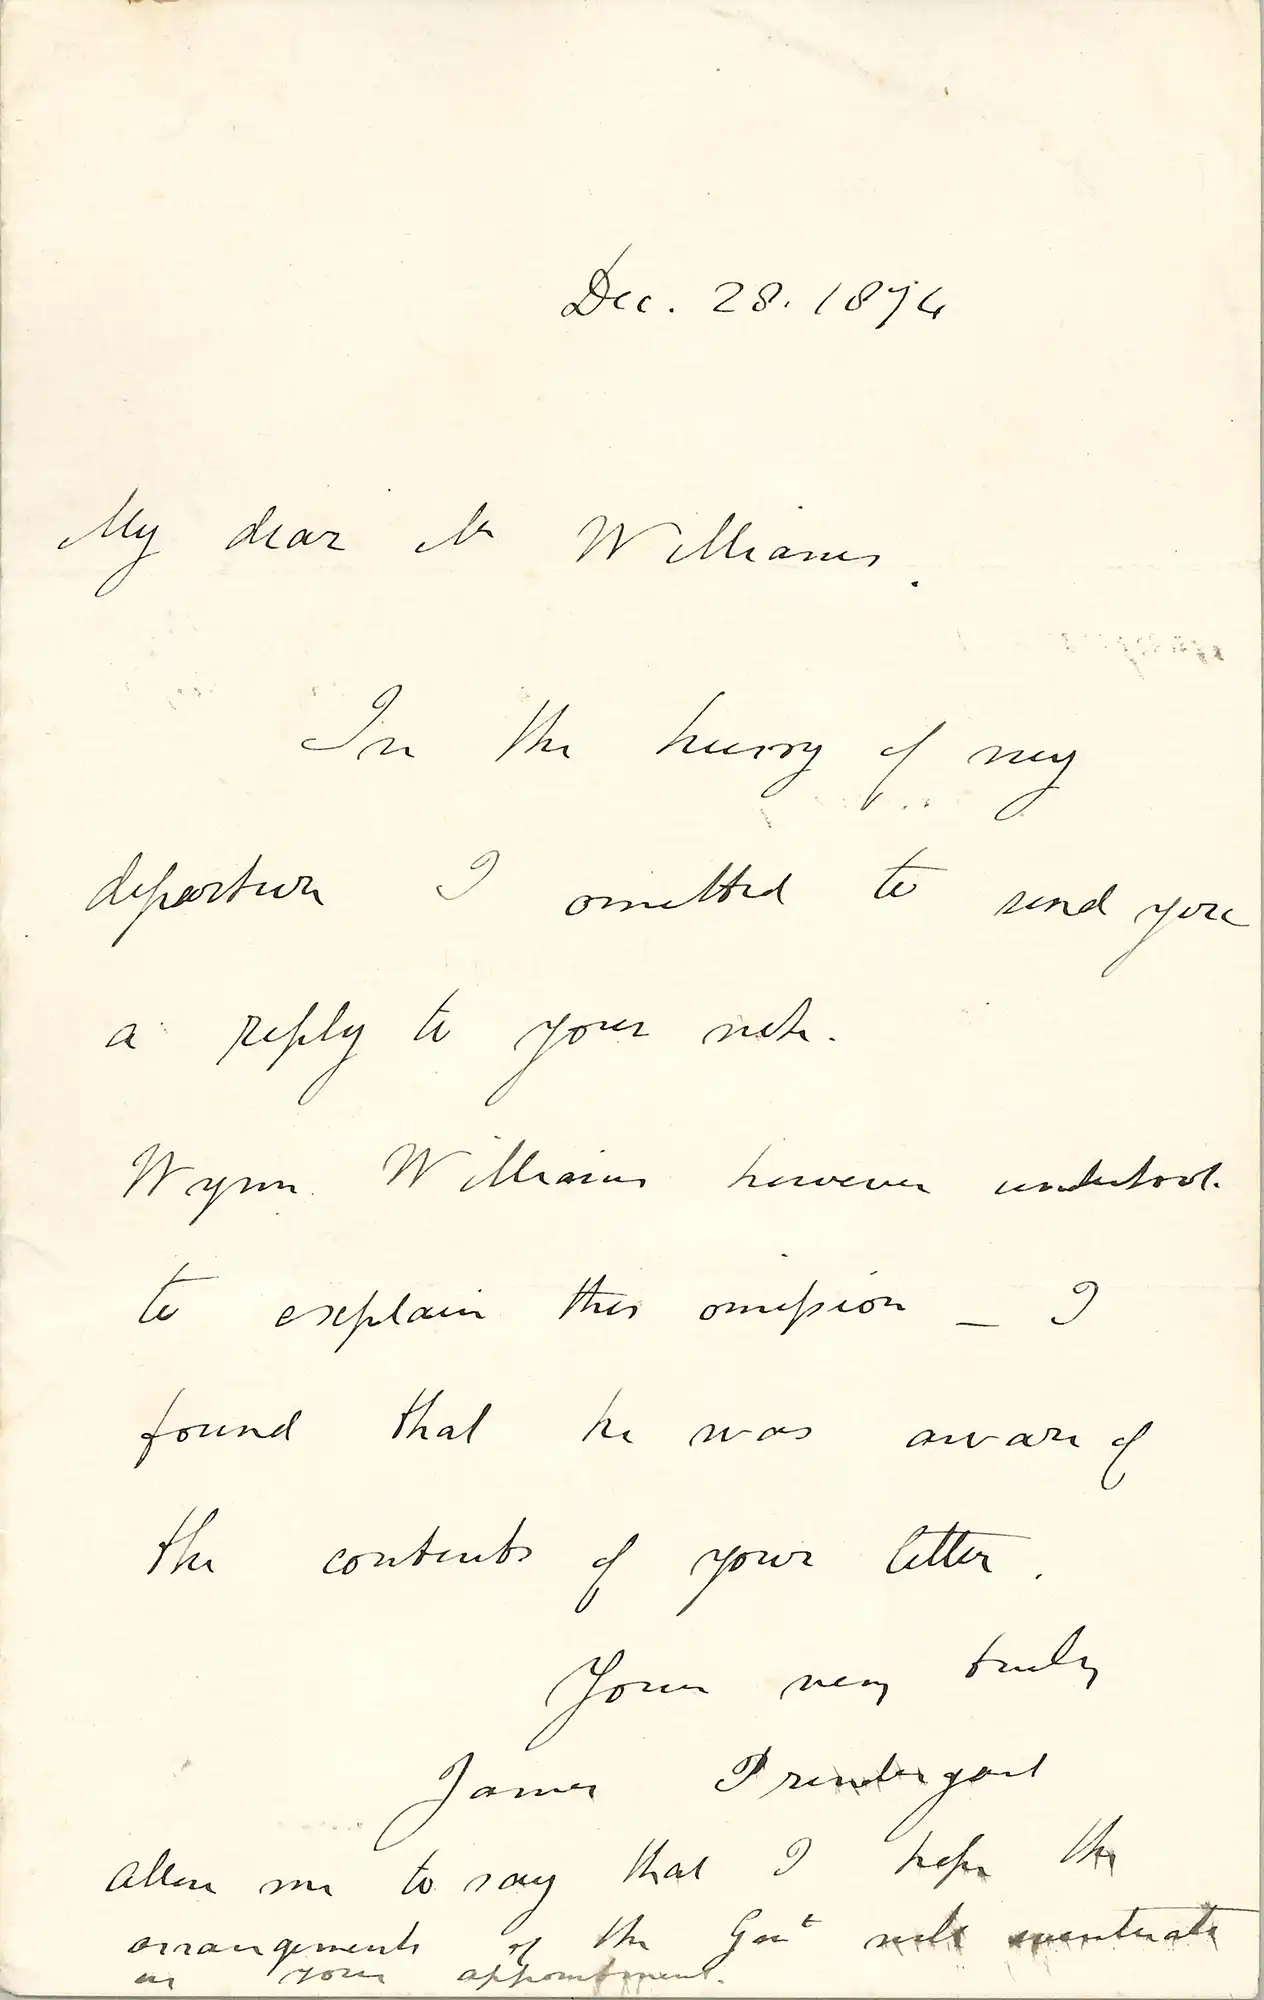 Dec. 28. 1874
My dear Mr Williams.
In the hurry of my
departure I omitted to send you
a reply to your note.
Wynn Williams however undertook
to explain this omission _ I
found that he was aware of
the contents of your letter.
Yours very truly
James Prendergast
Allow me to say that I hope the
arrangements of the Govt will eventuate
in your appointment.